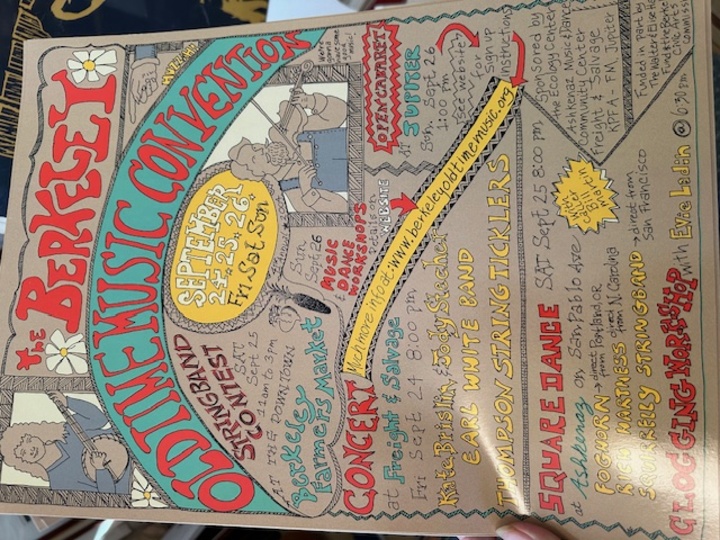 the BERKELEY
OLD TIME MUSIC CONVENTION
STRINGBAND
CONTEST
SAT
Sept 25
11am to 3pm
AT THE DOWNTOWN
Berkeley
Farmers Market
SEPTEMBER
24, 25, 26
Fri Sat Sun
Annual
Sun
Sept 26
MUSIC
& DANCE
WORKSHOPS
Details on
WEBSITE
We're
gonna
have some
good
music!
Much more info at: www.berkeleyoldtimemusic.org
CONCERT
at Freight & Salvage
Fri Sept 24 8:00 pm
Kate Brislin & Jody Stecher
EARL WHITE BAND
THOMPSON STRING TICKLERS
OPEN CABARET
AT JUPITER
Sun. Sept. 26
1:00 pm
See website
for
sign up
instructions
SQUARE DANCE SAT Sept 25 8:00 pm
at Ashkenaz on San Pablo Ave
FOGHORN → direct from Portland, OR
RICH HARTNESS direct from N. Carolina
SQUIRRELLY STRINGBAND → direct from San Francisco
with
caller
Bill
Martin
CLOGGING WORKSHOP with Evie Ladin @ 6:30 pm
Sponsored by
the Ecology Center
Ashkenaz Music & Dance
Community Center
Freight & Salvage
KPFA-FM, Jupiter
Funded in part by
The Walter & Elise
Fund & the Berkeley
Civic Arts